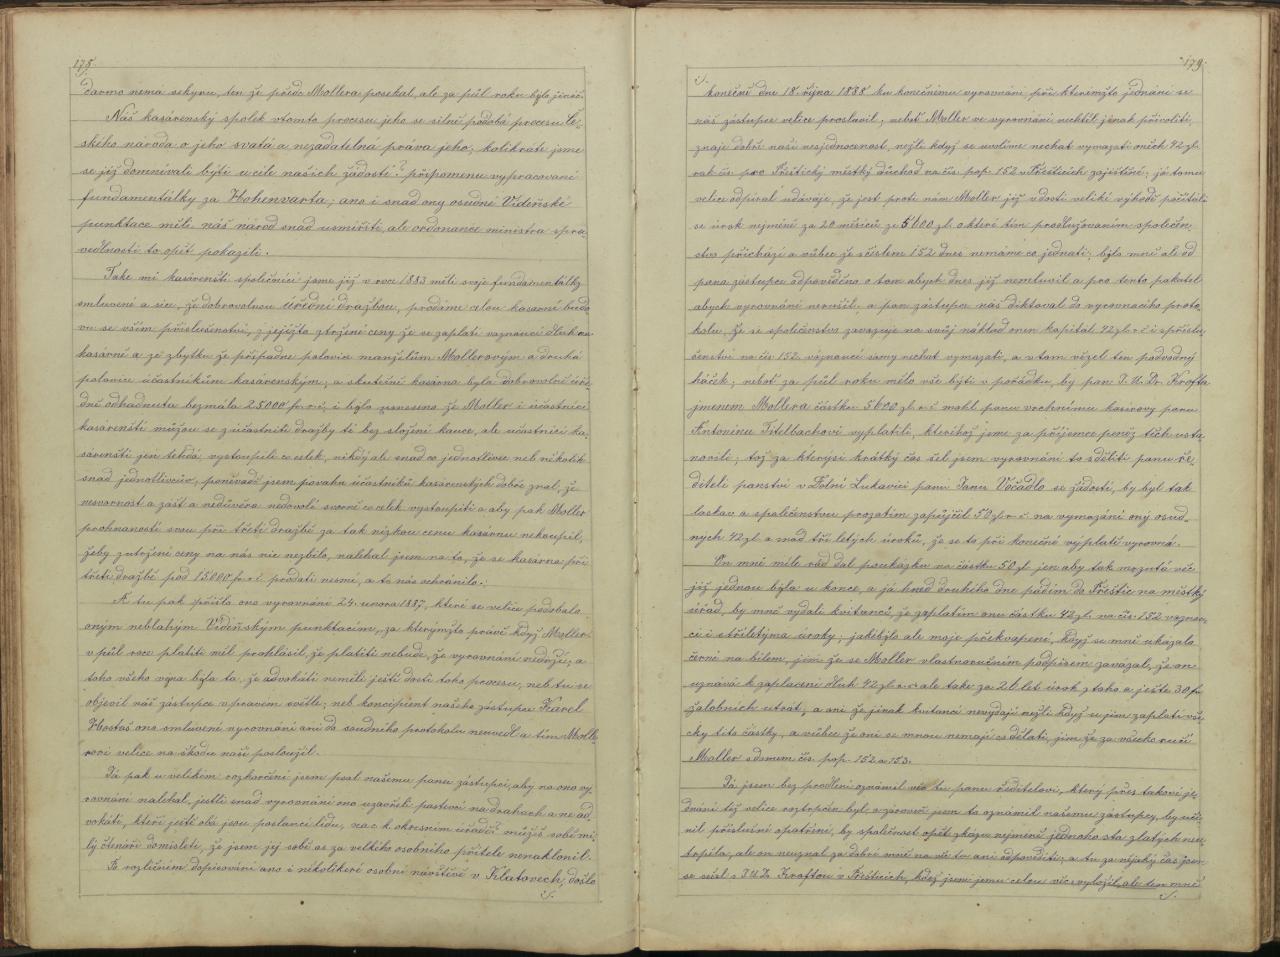 178.
darmo nemá sekyru, ten že přede Mollera posekal, ale za půl roku bylo jináč.
Náš kasárenský spolek vtomto procesu jeho se silně podobá procesu Če-
ského národa o jeho svatá a nezadatelná práva jeho; kolikráte jsme
se již domnívali býti u cíle našich žádostí? připomenu vypracované
fundamentálky za Hohenvarta; ano i snad ony osudné Vídeňské
punktace měli náš národ snad usmířiti, ale ordonance ministra spra-
vedlnosti to opět pokazili.
Také mi kasárenští společníci jsme již v roce 1883 měli svoje fundamentálky
smluvené a sice, že dobrovolnou úřední dražbou, prodáme celou kasární budo
vu se vším příslušenství, z jejížto stržené ceny že se zaplatí váznoucí dluh na
kasárně a ze zbytku že připadne polovic manželům Mollerovým a druhá
polovice účastníkům kasárenským; a skutečně kasárna byla dobrovolně úře-
dně odhadnuta bezmála 25000 fr. r. č, i bylo usneseno že Moller i účastníci
kasárenští můžou se zúčastniti dražby té bez složení kauce, ale účastníci ka-
sárenští jen tehdá, vystoupeli co celek, nikdy ale snad co jednotlivec neb několik
snad jednotlivců, poněvadž jsem povahu účastníků kasárenských dobře znal, že
nesvornost a zášt a nedůvěra nedovolí svorně co celek vystoupiti a aby pak Moller
prohnaností svou při třetí dražbě za tak nízkou cenu kasárnu nekoupil,
žeby z utržené ceny na nás nic nezbilo, naléhal jsem na to, že se kasárna při
třetí dražbě pod 15000 fr. r. č. prodati nesmí, a to nás uchránilo.
A tu pak přišlo ono vyrovnání 24. února 1887, které se velice podobalo
oným neblahým Vídeňským punktacím, za kterýmžto právě když Moller
v půl roce platiti měl prohlásil, že platiti nebude, že vyrovnání nedrží; a
toho všeho vina byla ta, že advokáti neměli ještě dosti toho procesu, neb tu se
objevil náš zástupce v pravém světle; neb koncipient našeho zástupce Karel
Hostaš ono smluvené vyrovnání ani do soudního protokolu neuvedl a tím Molle-
rovi velice na škodu naši posloužil.
Já pak u velikém rozhorčení jsem psal našemu panu zástupci, aby na ono vy-
rovnání naléhal, jestli snad vyrovnání ono uzavřeli pastevci na drahách a ne ad-
vokáti, kteří ještě oba jsou poslanci lidu, na c. k. okresním úřadě; můžeš sobě mi-
lý čtenáři domisleti, že jsem jej sobě as za velkého osobního přítele nenaklonil.
Po rozličném dopisování ano i několikeré osobní návštěvě v Klatovech, došlo
179.
konečně dne 18. října 1888 ku konečnému vyrovnání, při kterémžto jednání se
náš zástupce velice proslavil; neboť Moller ve vyrovnání nechtěl jinak přivoliti,
znaje dobře naši nesjednocenost, nežli když se uvolíme nechat vymazati oněch 42 zl.
rak. čís. pro Přeštický městký důchod na čís. pop. 152 v Přešticích zajištěné; já tomu
velice odpíral udávaje, že jest proti nám Moller již v dosti veliké výhodě počítáli
se úrok nejméně za 20 měsíců ze 5600 zl. o které tím prodlužováním společen-
stvo přichází a vůbec že s číslem 152 dnes nemáme co jednati; bylo mně ale od
pana zástupce odpověděno o tom abych dnes již nemluvil a pro tento pakatel
abych vyrovnání nerušil; a pan zástupce nás diktoval do vyrovnacího proto-
kolu, že se společenstvo zavazuje na svůj náklad onen kapitál 42 zl. r. č. i s příslu-
šenství na čís. 152. váznoucí samy nechat vymazati, a v tom vězel ten podvodný
háček; neboť za půl roku mělo vše býti v pořádku, by pan J. U. Dr. Krofta
jmenem Mollera částku 5600 zl. r. č. mohl panu vrchnímu kasírovy panu
Antonínu Titelbachovi vyplatiti, kteréhož jsme za příjemce peněz těch usta
novili; tož za kterýsi krátký čas šel jsem vyrovnání to sděliti panu ře-
diteli panství v Dolní Lukavici panu Janu Vočadlo se žádostí, by byl tak
laskav a společenstvu prozatím zapůjčil 50 zl. r. č. na vymazání oný osud-
ných 42 zl. a snad tří letých úroků, že se to při konečné výplatě vyrovná.
On mně mile rád dal poukázku na částku 50 zl. jen aby tak mrzutá věc
již jednou byla u konce, a já hned druhého dne pádím do Přeštic na městký
úřad, by mně vydali kvitanci, že zaplatím onu částku 42 zl. na čís. 152 váznou-
cí i s tříletýma úroky; jakébylo ale moje překvapení, když se mně ukázalo
černé na bílém, jím že se Moller vlastnoručním podpisem zavázal, že on
uznává k zaplacení dluh 42 zl. r. č. ale také za 26 let úrok z toho a ještě 30 fr.
žalobních útrat; a oni že jinak kvitanci nevydají nežli když se jim zaplatí vše
cky tito částky, a vůbec že oni se mnou nemají co dělati, jim že za všecko ručí
Moller s domem čís. pop. 152 a 153.
Já jsem bez prodlení oznámil věc tu panu řiditelovi, který přes takové je-
dnání též velice roztrpčen byl, a zároveň jsem to oznámil našemu zástupcy, by uči-
nil příslušné opatření, by společnost opět zkázu nejméně jednoho sta zlatých neu-
trpěla, ale on neuznal za dobré mně na vše to ani odpověditi; a tu za nějaký čas jsem
se sešel s J. U. Dr. Kroftou v Přešticích, kdež jsem jemu celou věc vyložil, ale ten mně